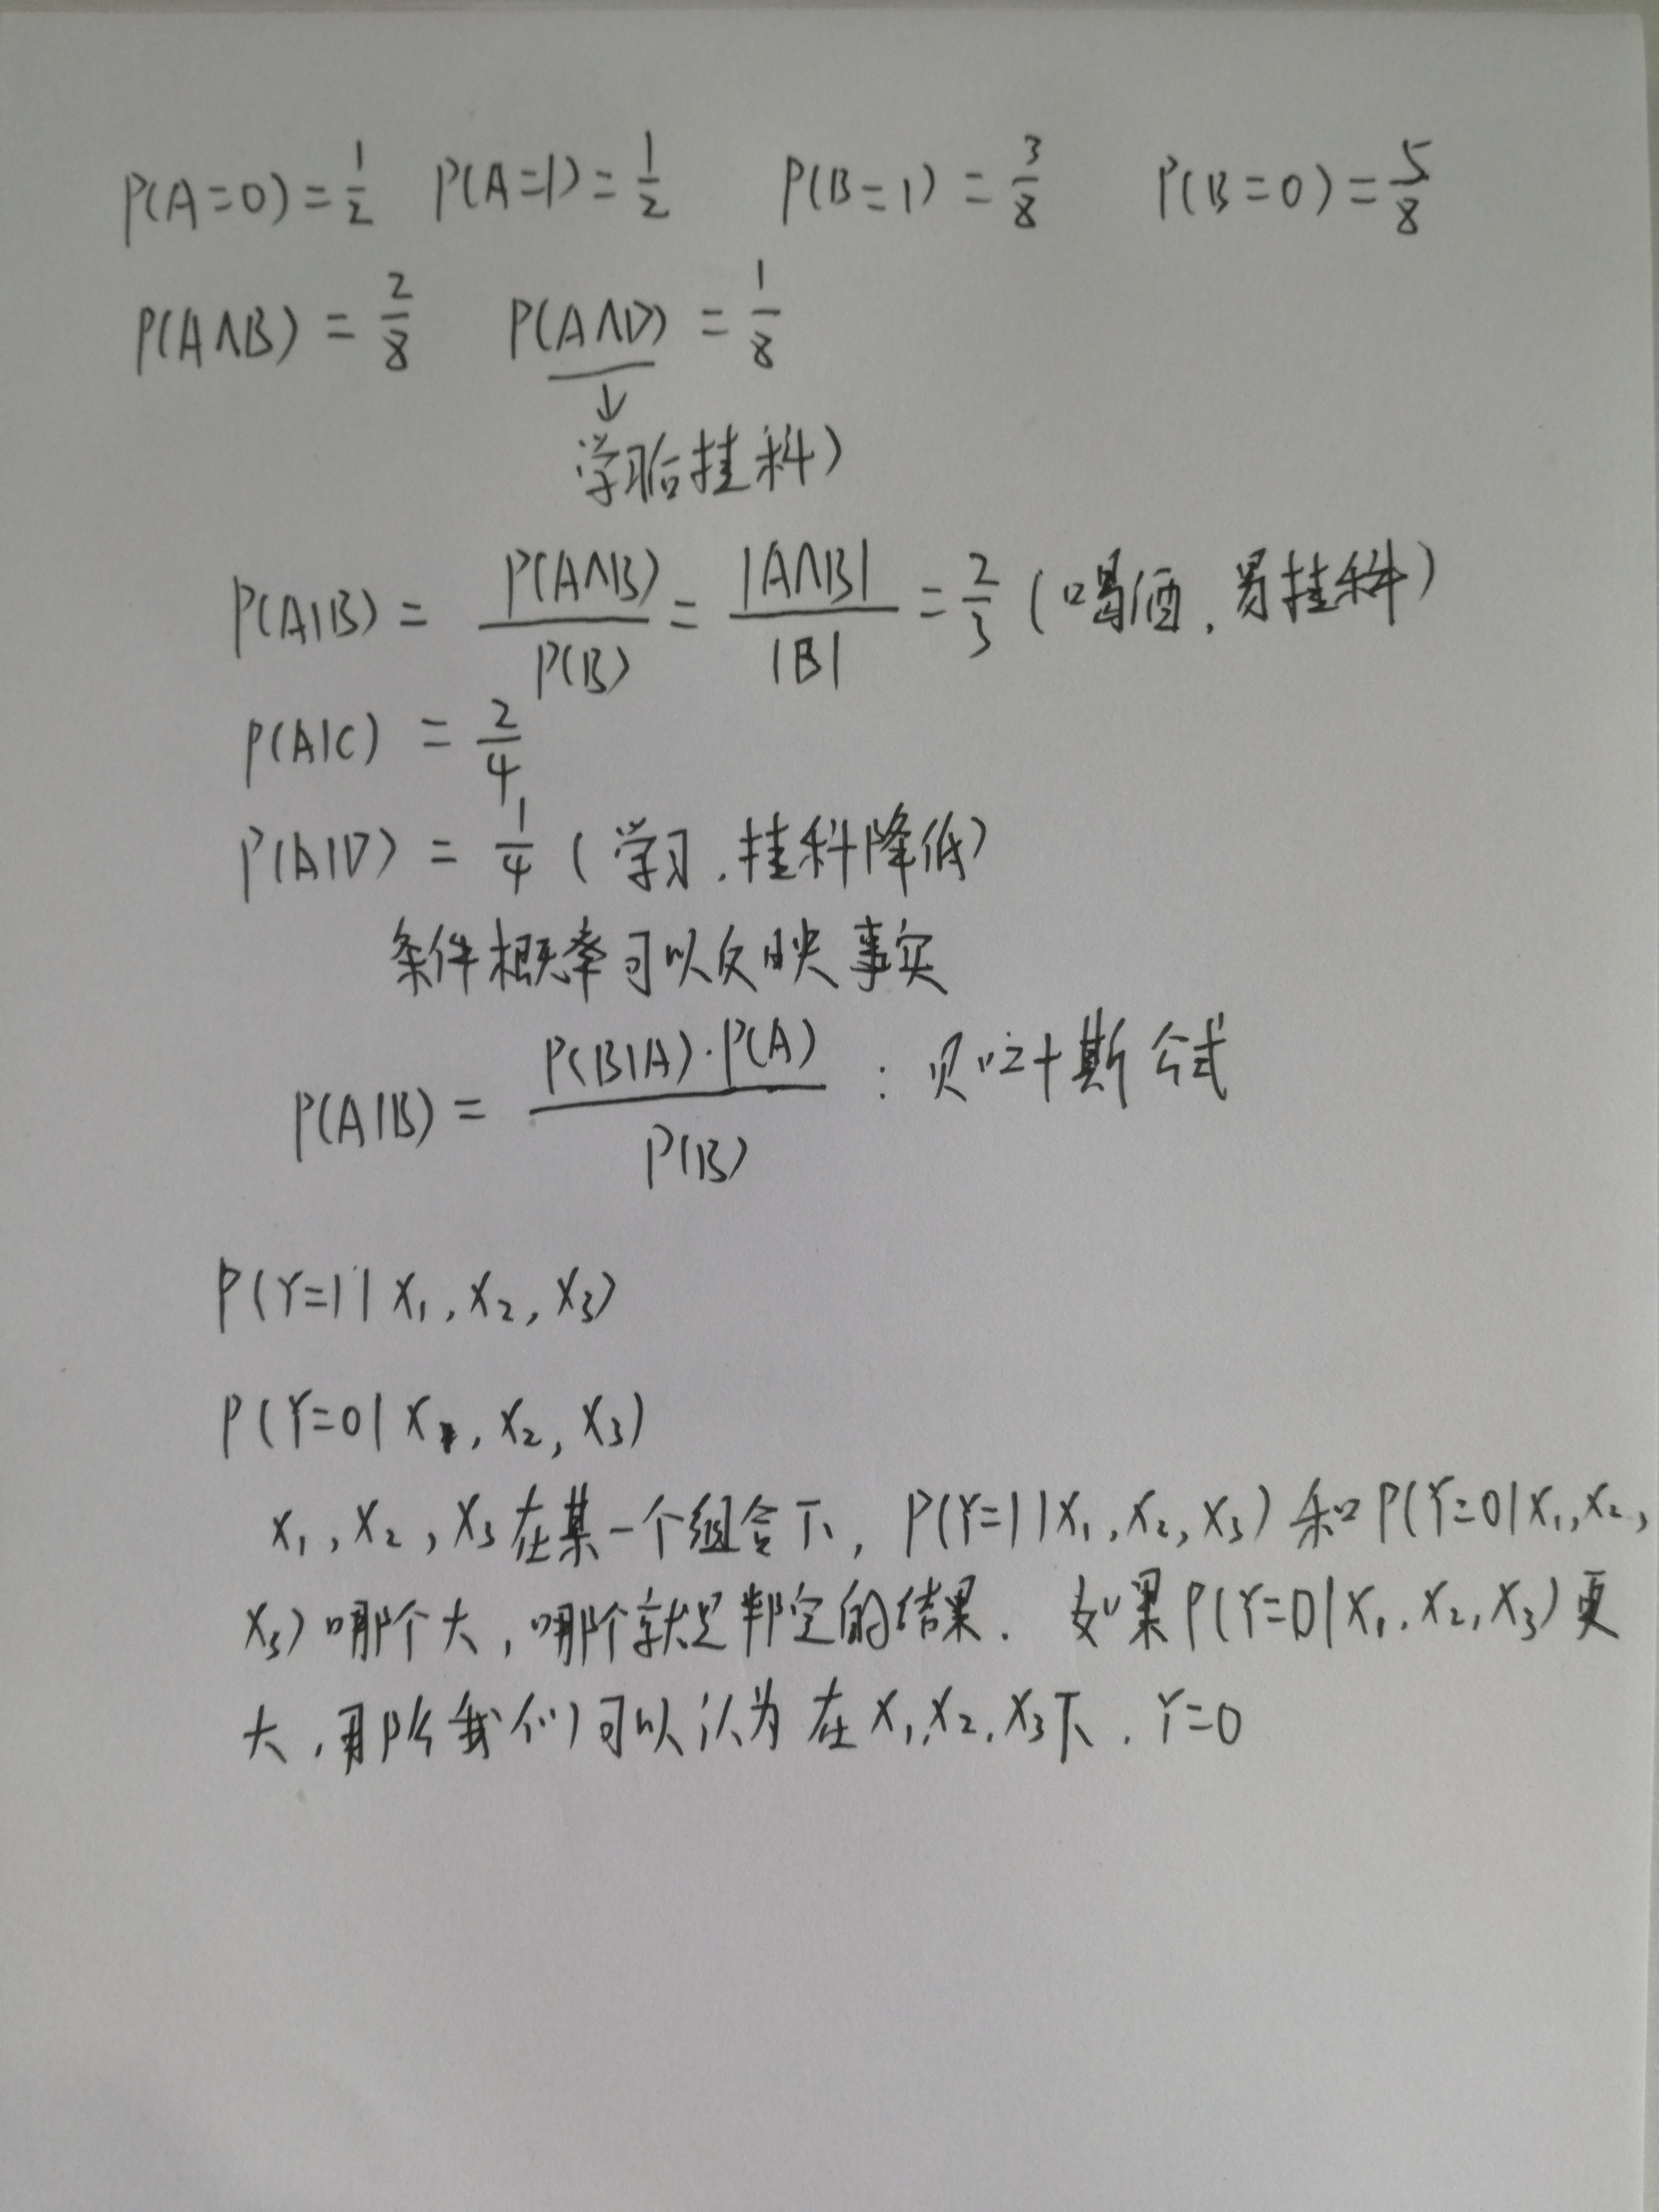 P(A=0)=1/2 P(A=1)=1/2 P(B=1)=3/8 P(B=0)=5/8
P(A∧B)=2/8 P(A∧D)=1/8
↓
学后挂科)
P(A|B)=P(A∧B)/P(B)=|A∧B|/|B|=2/3(喝酒,易挂科)
P(A|C)=2/4
P(A|D)=1/4(学习,挂科降低)
条件概率可以反映事实
P(A|B)=P(B|A)·P(A)/P(B):贝叶斯公式
P(Y=1|X₁,X₂,X₃)
P(Y=0|X₁,X₂,X₃)
X₁,X₂,X₃在某一个组合下,P(Y=1|X₁,X₂,X₃)和P(Y=0|X₁,X₂,
X₃)哪个大,哪个就是判定的结果.如果P(Y=0|X₁,X₂,X₃)更
大,那么我们可以认为在X₁,X₂,X₃下.Y=0